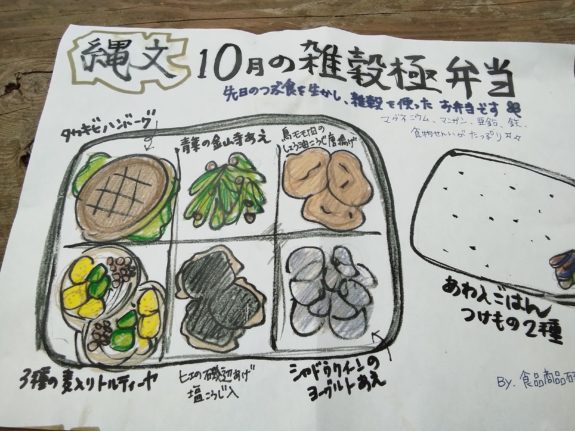 縄文 10月の雑穀極弁当
先日のつぶ食を生かし、雑穀を使ったお弁当です
マグネシウム、マンガン、亜鉛、鉄、
食物せんいがたっぷり
タカキビハンバーグ
青菜の金山寺あえ
鳥モモ肉の
しょう油こうじ唐揚げ
3種の麦入りトルティーヤ
ヒエの磯辺あげ
塩こうじ入
シャドウクイーンの
ヨーグルトあえ
あわ入ごはん
つけもの2種
By. 食品商品研